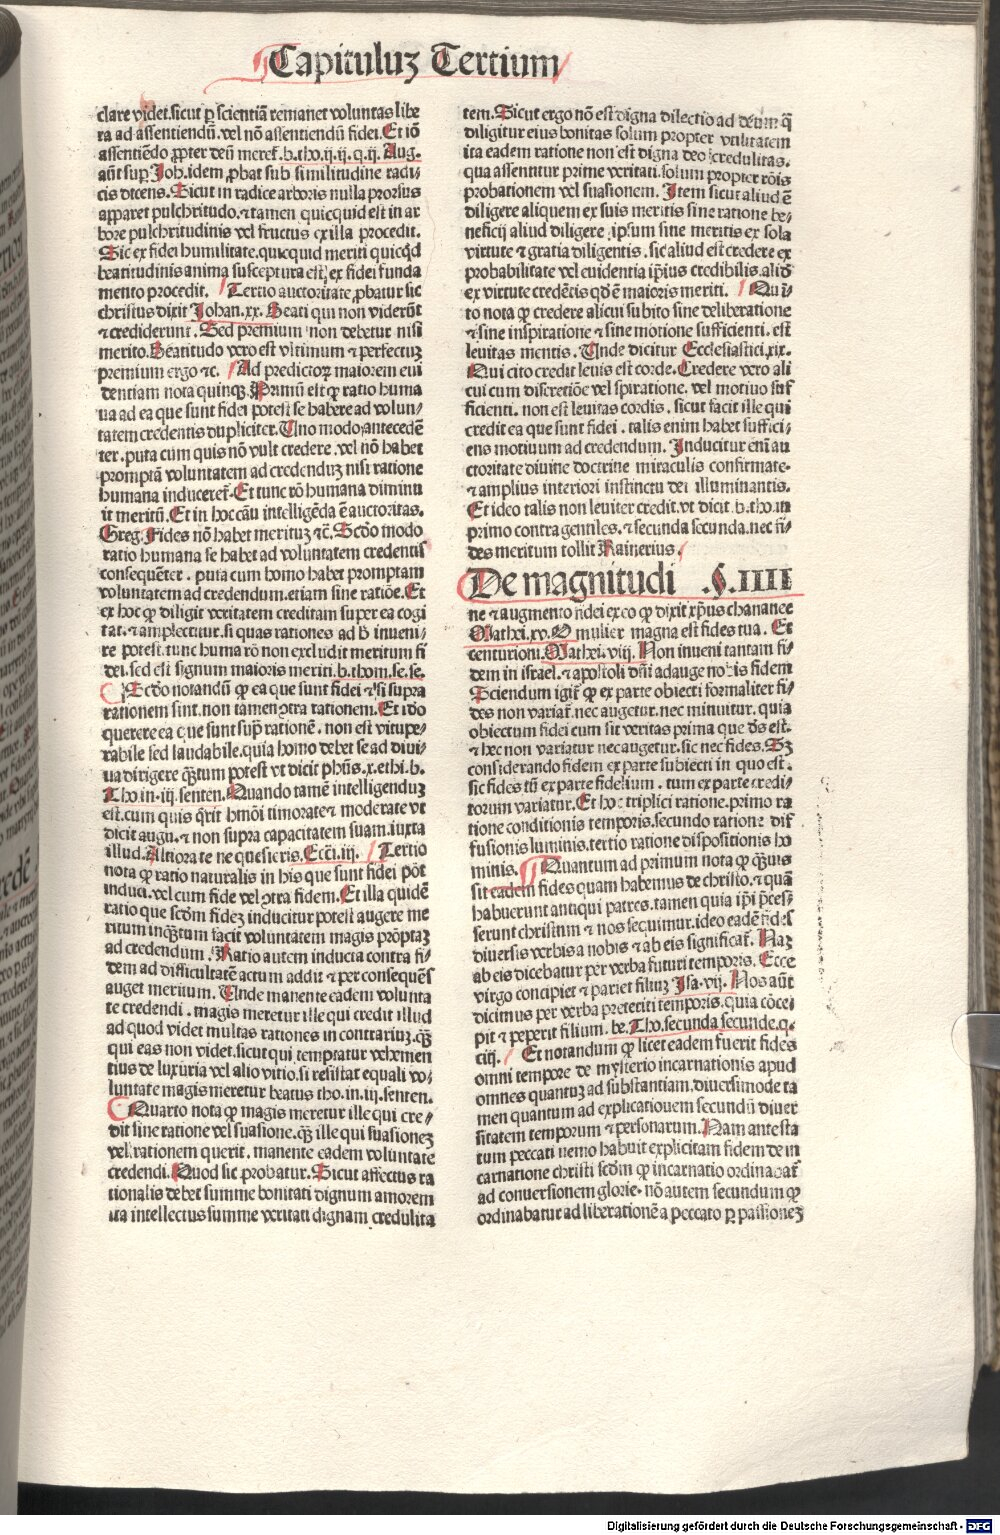 Capituluʒ Tertium
clare videt.sicut ꝑ scientiā remanet voluntas libe
ra ad assentiendū.vel nō assentiendū fidei.Et iō
assentiēdo ꝓpter deū meret̃.b.tho.ij.ij.q.ij. Aug.
aūt suꝑ Joh.idem ꝓbat sub similitudine radi-
cis dicens.Sicut in radice arboris nulla prorsus
apparet pulchritudo.⁊ tamen quicquid est in ar
bore pulchritudinis vel fructus ex illa procedit.
Sic ex fidei humilitate.quicquid meriti quicq̄d
beatitudinis anima susceptura est.ex fidei funda
mento procedit. Tertio auctoritate ꝓbatur sic
christus dixit Johan.xx. Beati qui non viderūt
⁊ crediderunt. Sed premium non debetur nisi
merito.Beatitudo vero est vltimum ⁊ perfectuʒ
premium ergo ⁊c. Ad predictoꝝ maiorem eui
dentiam nota quinqʒ. Primū est ꝙ ratio huma
na ad ea que sunt fidei potest se habere ad volun-
tatem credentis dupliciter.Uno modo antecedē
ter.puta cum quis nō vult credere.vel nō habet
promptā voluntatem ad credenduʒ nisi ratione
humana induceret̃.Et tunc rō humana diminu
it meritū.Et in hoc cāu intelligēda ē auctoritas.
Greg. Fides nō habet merituʒ ⁊c̃.Scd̄o modo
ratio humana se habet ad voluntatem credentis
consequēter.puta cum homo habet promptam
voluntatem ad credendum.etiam sine ratiōe.Et
ex hoc ꝙ diligit veritatem creditam super ea cogi
tat.⁊ amplectitur.si quas rationes ad h̄ inueni-
re potest.tunc huma rō non excludit meritum fi
dei.sed est signum maioris meriti.b.thom.se.se.
Scd̄o notandū ꝙ ea que sunt fidei ⁊ si supra
rationem sint.non tamen ↄtra rationem.Et ido
querere ea que sunt sup̄ rationē.non est vitupe-
rabile sed laudabile.quia homo debet se ad diui-
na dirigere q̄ʒtum potest vt dicit phūs.x.ethi.b.
Tho.in.iij.senten.Quando tamē intelligenduʒ
est.cum quis q̄rit hmōi timorate ⁊ moderate vt
dicit augu.⁊ non supra capacitatem suam.iuxta
illud.Altiora te ne quesieris.Ecci.iij. Tertio
nota ꝙ ratio naturalis in his que sunt fidei pōt
induci.vel cum fide vel ↄtra fidem.Et illa quidē
ratio que scd̄m fideʒ inducitur potest augere me
ritum inq̄ʒtum facit voluntatem magis prōptaʒ
ad credendum.Ratio autem inducta contra fi-
dem ad difficultatē actum addit ⁊ per consequēs
auget meritum.Unde manente eadem volunta
te credendi.magis meretur ille qui credit illud
ad quod videt multas rationes in contrariuʒ.q̄ʒ
qui eas non videt.sicut qui temptatur vehemen
tius de luxuria vel alio vitio.si resistat equali vo-
luntate magis meretur beatus tho.in.iij.senten.
Quarto nota ꝙ magis meretur ille qui cre-
dit sine ratione vel suasione.q̄ʒ ille qui suasioneʒ
vel rationem querit.manente eadem voluntate
credendi.Quod sic probatur.Sicut affectus ra
tionalis debet summe bonitati dignum amorem
ita intellectus summe veritati dignam credulita
tem.Sicut ergo nō est digna dilectio ad deum q̄
diligitur eius bonitas solum propter vtilitatem
ita eadem ratione non est digna deo credulitas.
qua assentitur prime veritati.solum propter rōis
probationem vel suasionem. Item sicut aliud ē
diligere aliquem ex suis meritis sine ratione be-
neficij aliud diligere ipsum sine meritis ex sola
virtute ⁊ gratia diligentis.sic aliud est credere ex
probabilitate vel euidentia ip̄ius credibilis.aliō
ex virtute credētis qd̄ ē maioris meriti. Quī-
to nota ꝙ credere alicui subito sine deliberatione
⁊ sine inspiratione ⁊ sine motione sufficienti.est
leuitas mentis.Unde dicitur Ecclesiastici.xix.
Qui cito credit leuis est corde.Credere vero ali
cui cum discretiōe vel spiratione.vel motiuo suf
ficienti.non est leuitas cordis.sicut facit ille qui
credit ea que sunt fidei.talis enim habet suffici-
ens motiuum ad credendum. Inducitur em̄ au
ctoritate diuine doctrine miraculis confirmate.
⁊ amplius interiori instinctu dei illuminantis.
Et ideo talis non leuiter credit.vt dicit.b.tho.in
primo contra gentiles.⁊ secunda secunda.nec fi-
des meritum tollit Rainerius.
De magnitudi .§.IIII
ne ⁊ augmento fidei ex eo ꝙ dixit xp̄us chananee
Mathei.xv.O mulier magna est fides tua. Et
centurioni.Mathei.viij.Non inueni tantam fi-
dem in israel.⁊ apostoli dn̄i adauge nobis fidem
Sciendum igit̃ ꝙ ex parte obiecti formaliter fi-
des non variat̃.nec augetur.nec minuitur.quia
obiectum fidei cum sit veritas prima que d̄s est.
⁊ hec non variatur nec augetur.sic nec fides.Sʒ
considerando fidem ex parte subiecti in quo est.
sic fides tū ex parte fidelium.tum ex parte credi-
torum variatur.Et hoc triplici ratione.primo ra
tione conditionis temporis.secundo ratione dif
fusionis luminis.tertio ratione dispositionis ho
minis. Quantum ad primum nota ꝙ q̄ʒuis
sit eadem fides quam habemus de christo.⁊ quā
habuerunt antiqui patres.tamen quia ip̄i p̄ces-
serunt christum ⁊ nos sequimur.ideo eadē fides
diuersis verbis a nobis ⁊ ab eis significat̃. Naʒ
ab eis dicebatur per verba futuri temporis. Ecce
virgo concipiet ⁊ pariet filiuʒ Isa.vij. Nos aūt
dicimus per verba preteriti temporis.quia cōce-
pit ⁊ peperit filium.be.Tho.secunda secunde.q.
ciij. Et notandum ꝙ licet eadem fuerit fides
omni tempore de mysterio incarnationis apud
omnes quantuʒ ad substantiam.diuersimode ta
men quantum ad explicationem secundū diuer
sitatem temporum ⁊ personarum.Nam ante sta
tum peccati nemo habuit explicitam fidem de in
carnatione christi scd̄m ꝙ incarnatio ordinabat̃
ad conuersionem glorie.nō autem secundum ꝙ
ordinabatur ad liberationē a peccato ꝑ passioneʒ
Digitalisierung gefördert durch die Deutsche Forschungsgemeinschaft - DFG